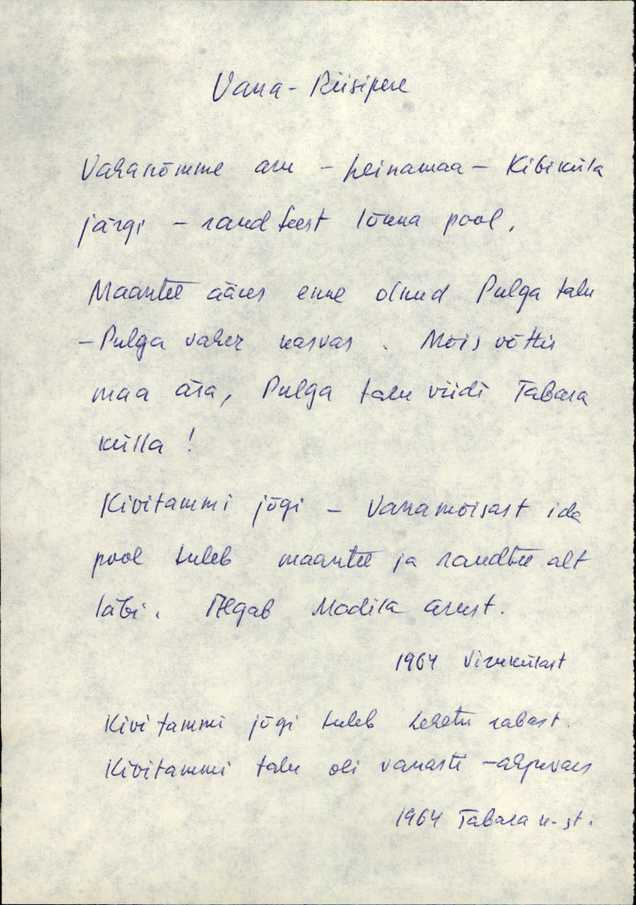 Vana-Riisipere
Vahanõmme aru - heinamaa - Kibiküla
järgi - raudteest lõuna pool.
Maantee ääres enne olnud Pulga talu
- Pulga vaher kasvas. Mõis võttis
maa ära, Pulga talu viidi Tabara
külla!
Kivitammi jõgi - Vanamõisast ida
pool tuleb maantee ja raudtee alt
läbi. Algab Madila arust.
1964 Virukülast
Kivitammi jõgi tuleb Lehetu rabast.
Kivitammi talu oli vanasti
1964 Tabara k-st.